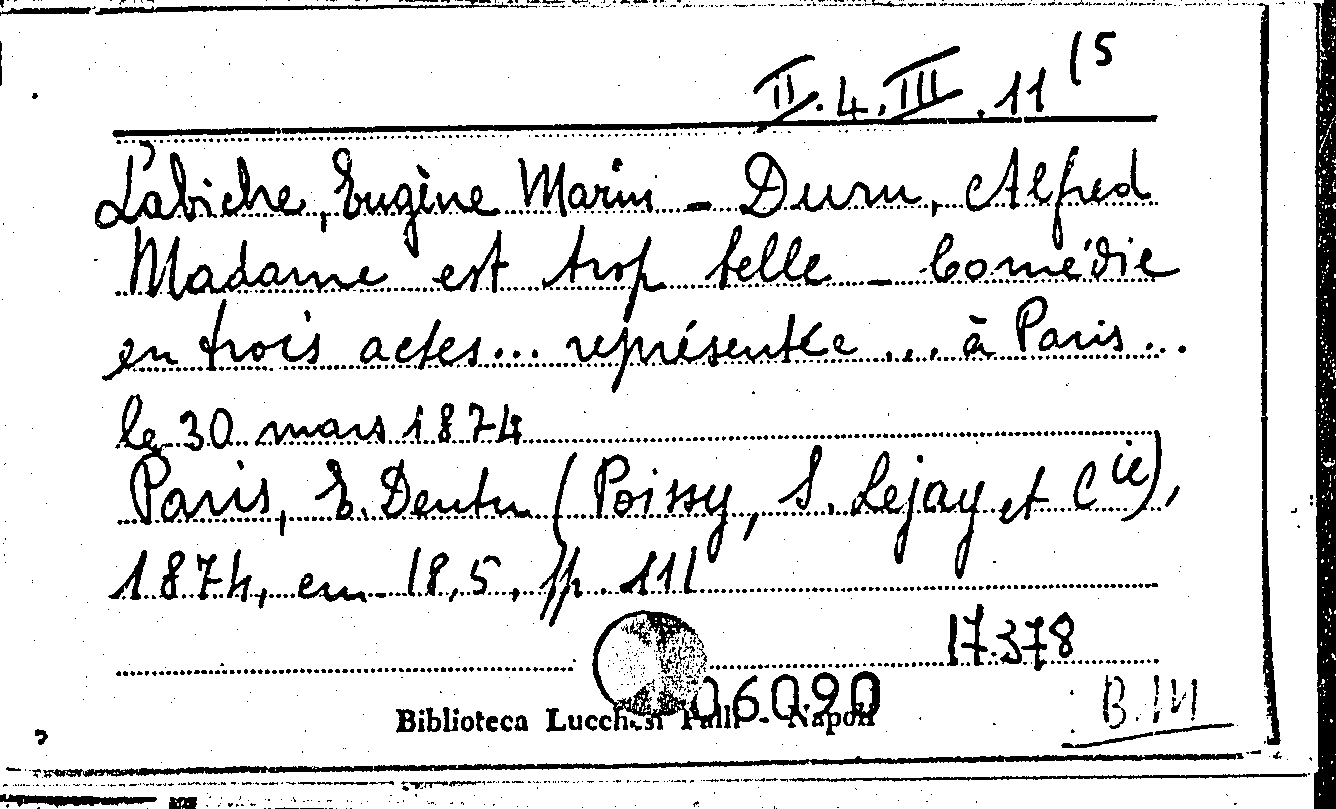 II.4.III.11 (5
Labiche, Eugène Marin - Duru, Alfred
Madame est trop belle - Comédie
en trois actes... représentée ... à Paris...
le 30 mars 1874
Paris, E. Dentu (Poissy, S. Lejay et Cie),
1874, cm. 18,5, pp. 111
17.378
06090
Biblioteca Lucchesi Palli - Napoli